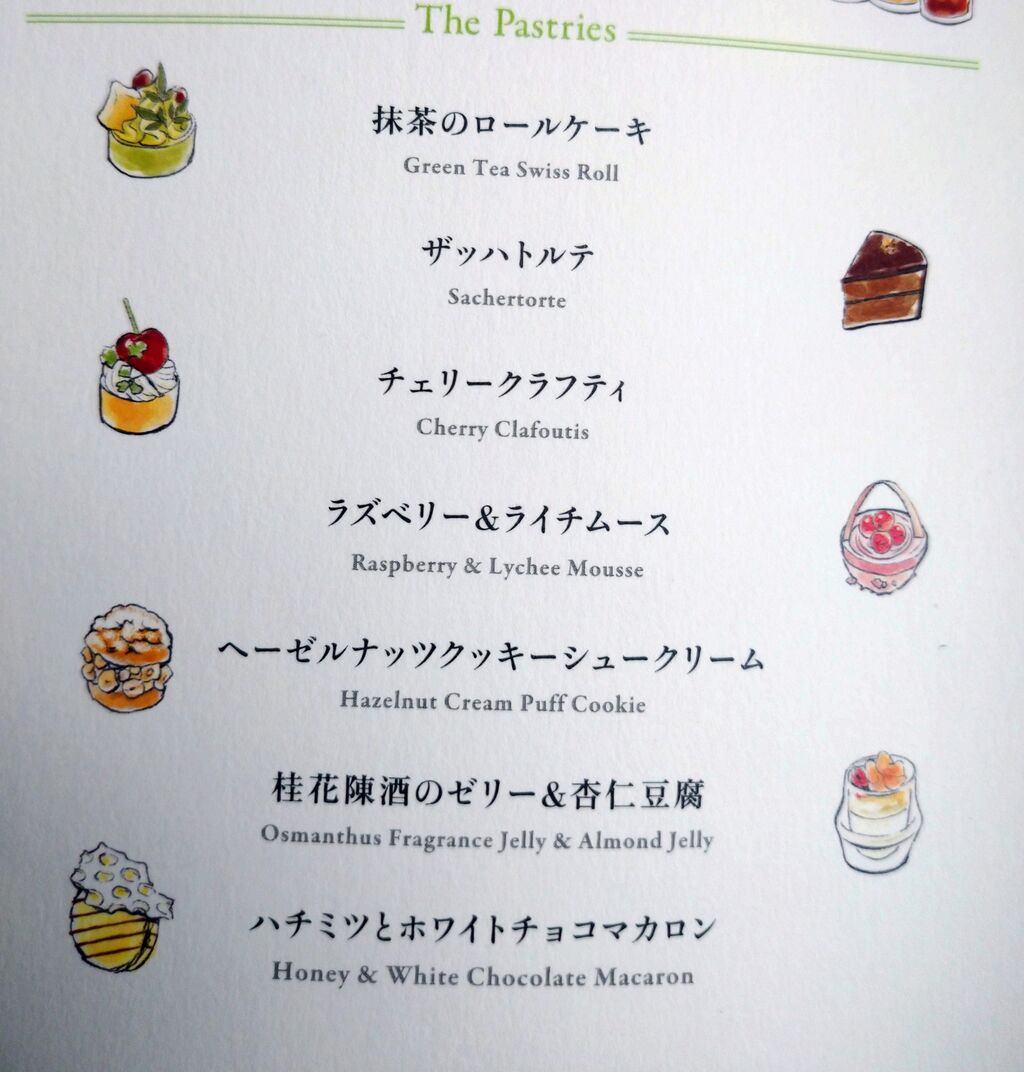 The Pastries
抹茶のロールケーキ
Green Tea Swiss Roll
ザッハトルテ
Sachertorte
チェリークラフティ
Cherry Clafoutis
ラズベリー&ライチムース
Raspberry & Lychee Mousse
ヘーゼルナッツクッキーシュークリーム
Hazelnut Cream Puff Cookie
桂花陳酒のゼリー&杏仁豆腐
Osmanthus Fragrance Jelly & Almond Jelly
ハチミツとホワイトチョコマカロン
Honey & White Chocolate Macaron